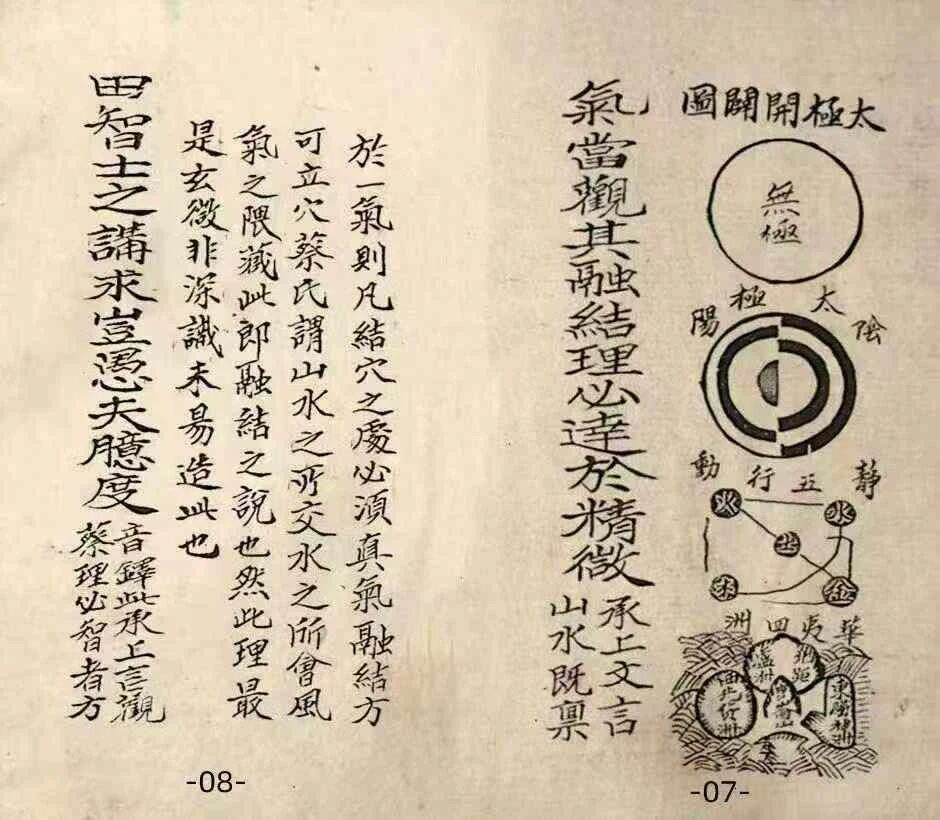 太極開闢圖
無極
陰
太極
陽
靜
五行
動
火
水
土
木
金
華夷四洲
氣當觀其融結理必達於精微
承上文言
山水既禀
-07-
於一氣則凡結穴之處必須真氣融結方
可立穴蔡氏謂山水之所交水之所會風
氣之隈藏此即融結之說也然此理最
是玄微非深識未易造此也
田智士之講求豈愚夫臆度
音鐸此承上言觀
蔡理必智者方
-08-